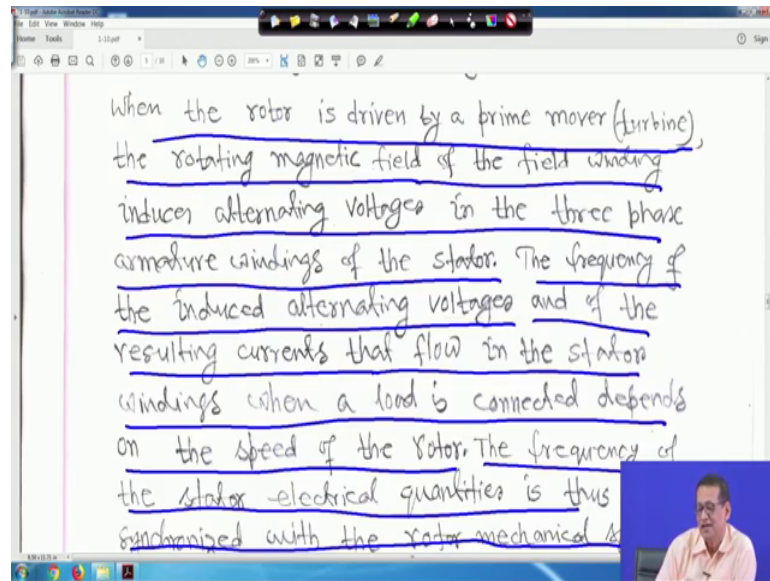 1-10.pdf - Adobe Acrobat Reader DC
File Edit View Window Help
Home Tools 1-10.pdf × Sign
5 / 10 200%
When the rotor is driven by a prime mover (turbine),
the rotating magnetic field of the field winding
induces alternating voltages in the three phase
armature windings of the stator. The frequency of
the induced alternating voltages and of the
resulting currents that flow in the stator
windings when a load is connected depends
on the speed of the rotor. The frequency of
the stator electrical quantities is thus
synchronized with the rotor mechanical